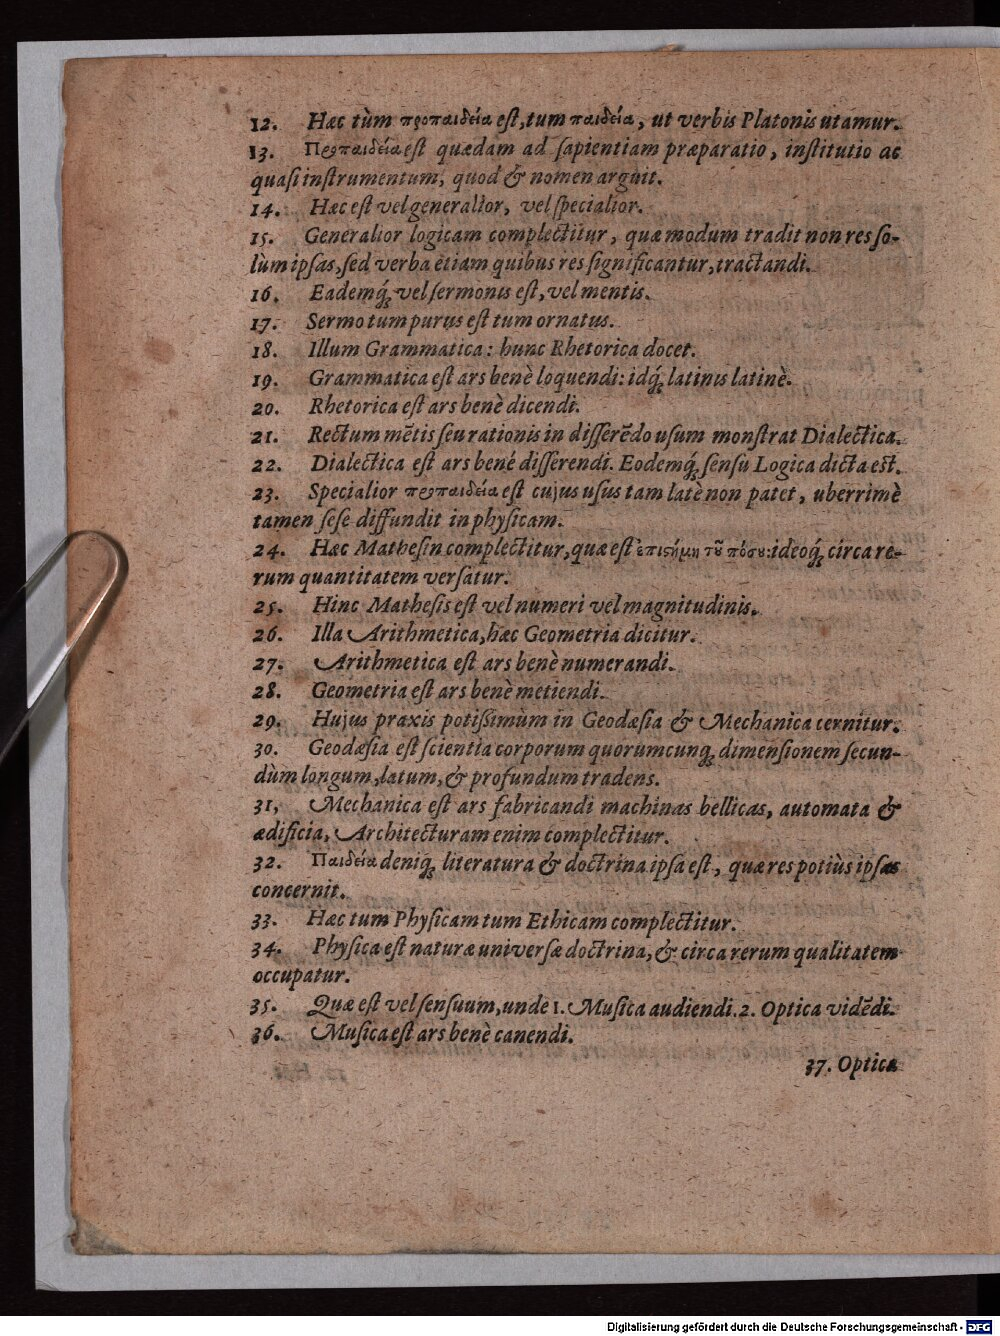 12. Hæc tùm προπαιδεία eſt, tum παιδεία, ut verbis Platonis utamur.
13. Προπαιδεία eſt quædam ad ſapientiam præparatio, inſtitutio ac
quaſi inſtrumentum, quod & nomen arguit.
14. Hæc eſt vel generalior, vel ſpecialior.
15. Generalior logicam complectitur, quæ modum tradit non res ſo-
lùm ipſas, ſed verba etiam quibus res ſignificantur, tractandi.
16. Eademq́; vel ſermonis eſt, vel mentis.
17. Sermo tum purus eſt tum ornatus.
18. Illum Grammatica: hunc Rhetorica docet.
19. Grammatica eſt ars benè loquendi: idq́; latinis latinè.
20. Rhetorica eſt ars benè dicendi.
21. Rectum mētis ſeu rationis in diſſerēdo uſum monſtrat Dialectica.
22. Dialectica eſt ars bené diſſerendi. Eodemq́; ſenſu Logica dicta est.
23. Specialior προπαιδεία eſt cujus uſus tam latè non patet, uberrimè
tamen ſeſe diffundit in phyſicam.
24. Hæc Matheſin complectitur, quæ eſt ἐπιϛήμη τȣ͂ πόσȣ: ideoq́; circa re-
rum quantitatem verſatur.
25. Hinc Matheſis eſt vel numeri vel magnitudinis.
26. Illa Arithmetica, hæc Geometria dicitur.
27. Arithmetica eſt ars benè numerandi.
28. Geometria eſt ars benè metiendi.
29. Hujus praxis potiſsimùm in Geodæſia & Mechanica cernitur.
30. Geodæſia eſt ſcientia corporum quorumcunq; dimenſionem ſecun-
dùm longum, latum, & profundum tradens.
31, Mechanica eſt ars fabricandi machinas bellicas, automata &
ædificia, Architecturam enim complectitur.
32. Παιδεία deniq; literatura & doctrina ipſa eſt, quæ res potiùs ipſas
concernit.
33. Hæc tum Phyſicam tum Ethicam complectitur.
34. Phyſica eſt naturæ univerſæ doctrina, & circa rerum qualitatem
occupatur.
35. Quæ eſt vel ſenſuum, unde 1. Muſica audiendi. 2. Optica vidēdi.
36. Muſica eſt ars benè canendi.
37. Optica
Digitalisierung gefördert durch die Deutsche Forschungsgemeinschaft - DFG